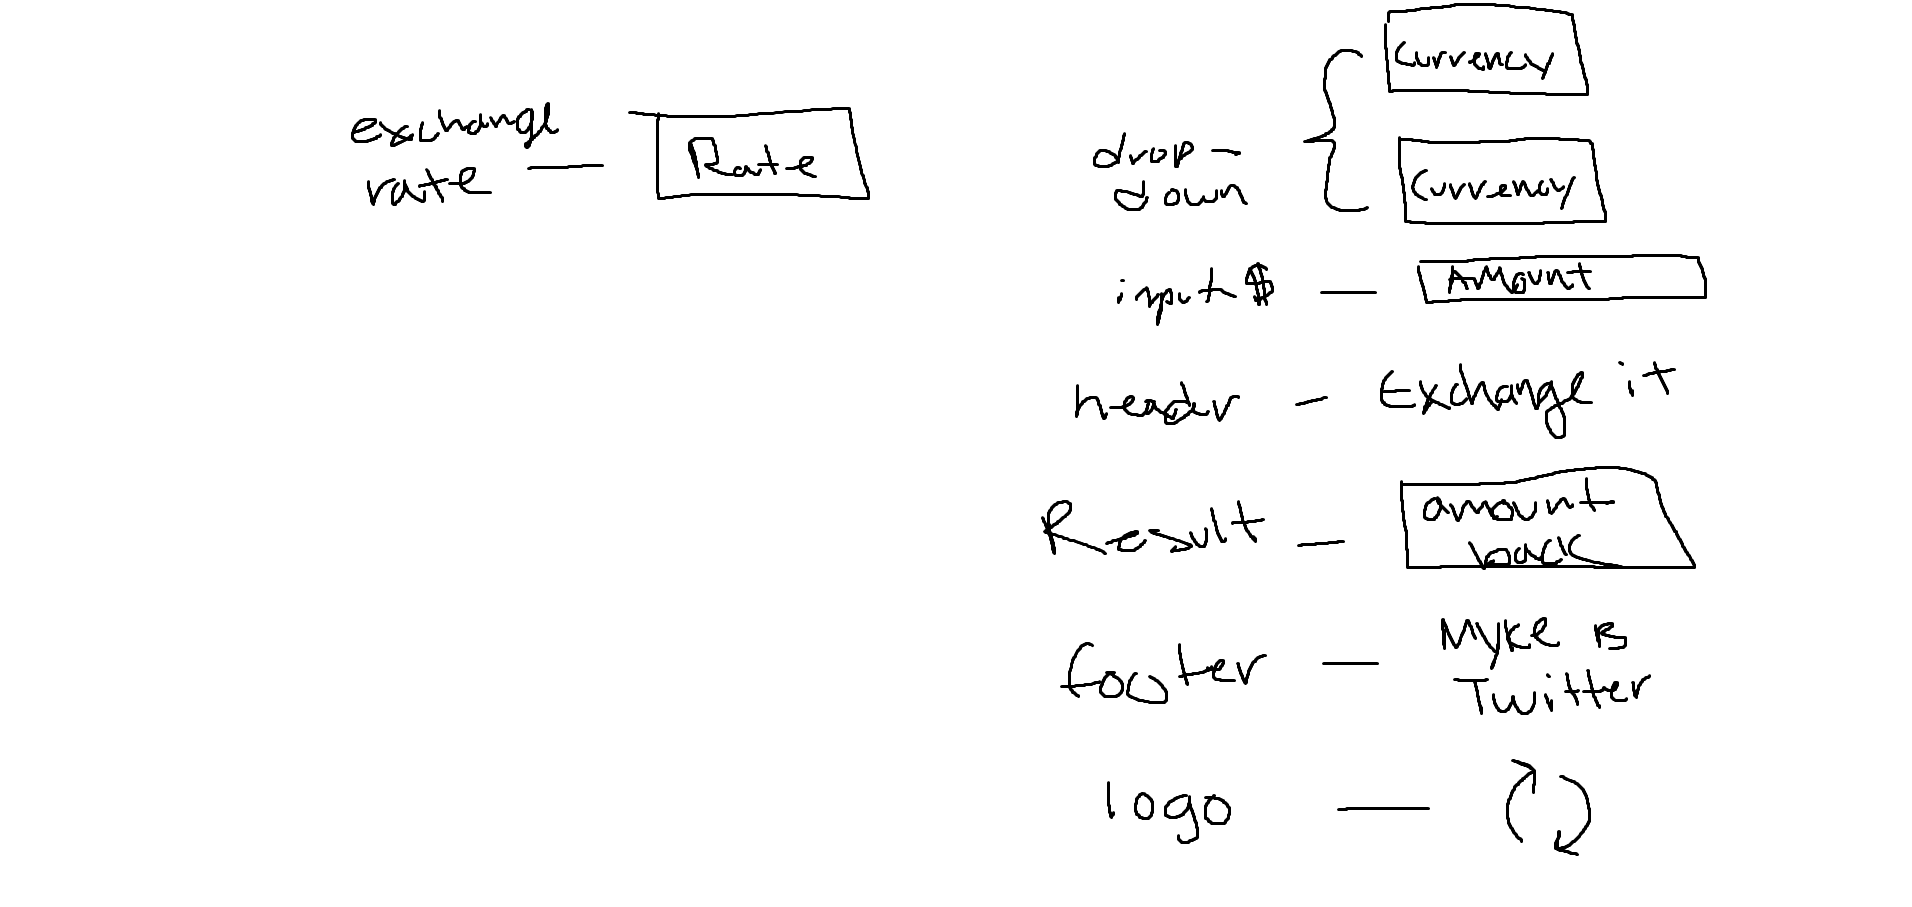 exchange
rate — Rate
Currency
drop-
down
Currency
input $ — Amount
header - Exchange it
Result — amount
back
footer — Myke is
Twitter
logo —